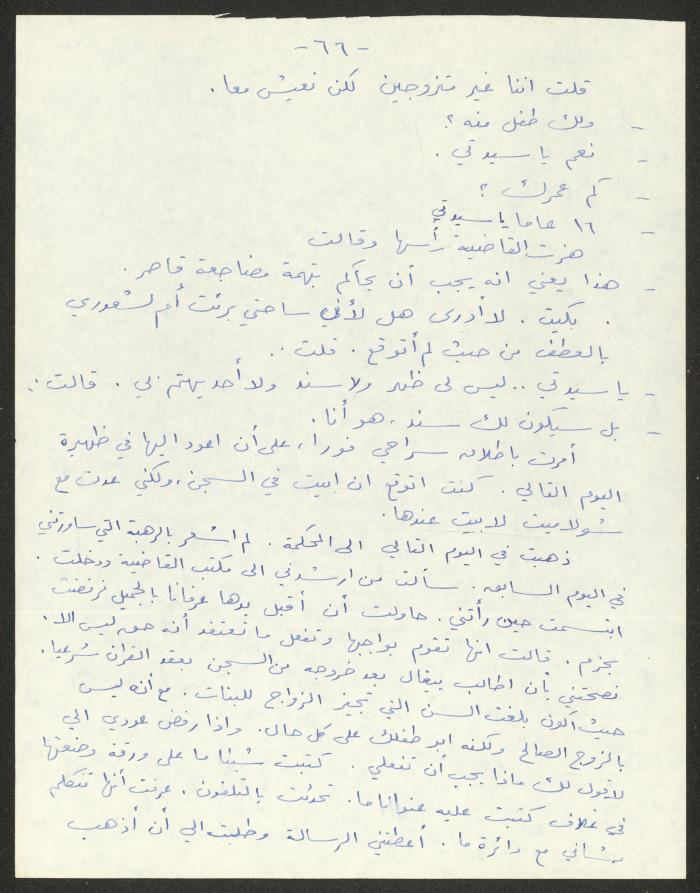 - ٦٦ -
قلت اننا غير متزوجين لكن نعيش معا.
- ولك طفل منه؟
- نعم يا سيدتي.
- كم عمرك؟
- ١٦ عاما يا سيدتي
هزت القاضية رأسها وقالت
- هذا يعني انه يجب أن يحاكم بتهمة مضاجعة قاصر.
. بكيت. لا أدرى هل لأني ساحتي برئت أم لشعوري
بالعطف من حيث لم أتوقع. قلت..
- يا سيدتي.. ليس لى ظهر ولا سند ولا أحد يهتم بي. قالت..
- بل سيكون لك سند، هو أنا.
أمرت باطلاق سراحي فورا، على أن اعود اليها في ظهيرة
اليوم التالي. كنت اتوقع ان ابيت في السجن، ولكني عدت مع
شولاميت لابيت عندها.
ذهبت في اليوم التالي الى المحكمة. لم اشعر بالرهبة التي ساورتني
في اليوم السابق. سألت من ارشدني الى مكتب القاضية ودخلت.
ابتسمت حين رأتني. حاولت أن أقبل يدها عرفانا بالجميل فرفضت
بحزم. قالت انها تقوم بواجبها وتفعل ما تعتقد أنه حق ليس الا.
نصحتني بأن اطالب بيغال بعد خروجه من السجن بعقد القران شرعيا.
حيث أكون بلغت السن التي تجيز الزواج للبنات. مع أنه ليس
بالزوج الصالح ولكنه ابو طفلك على كل حال. واذا رفض عودي الي
لاقول لك ماذا يجب أن تفعلي. كتبت شيئا ما على ورقة وضعتها
في غلاف كتبت عليه عنوانا ما. تحدثت بالتلفون. عرفت أنها تتكلم
بشاني مع دائرة ما. أعطتني الرسالة وطلبت الي أن أذهب